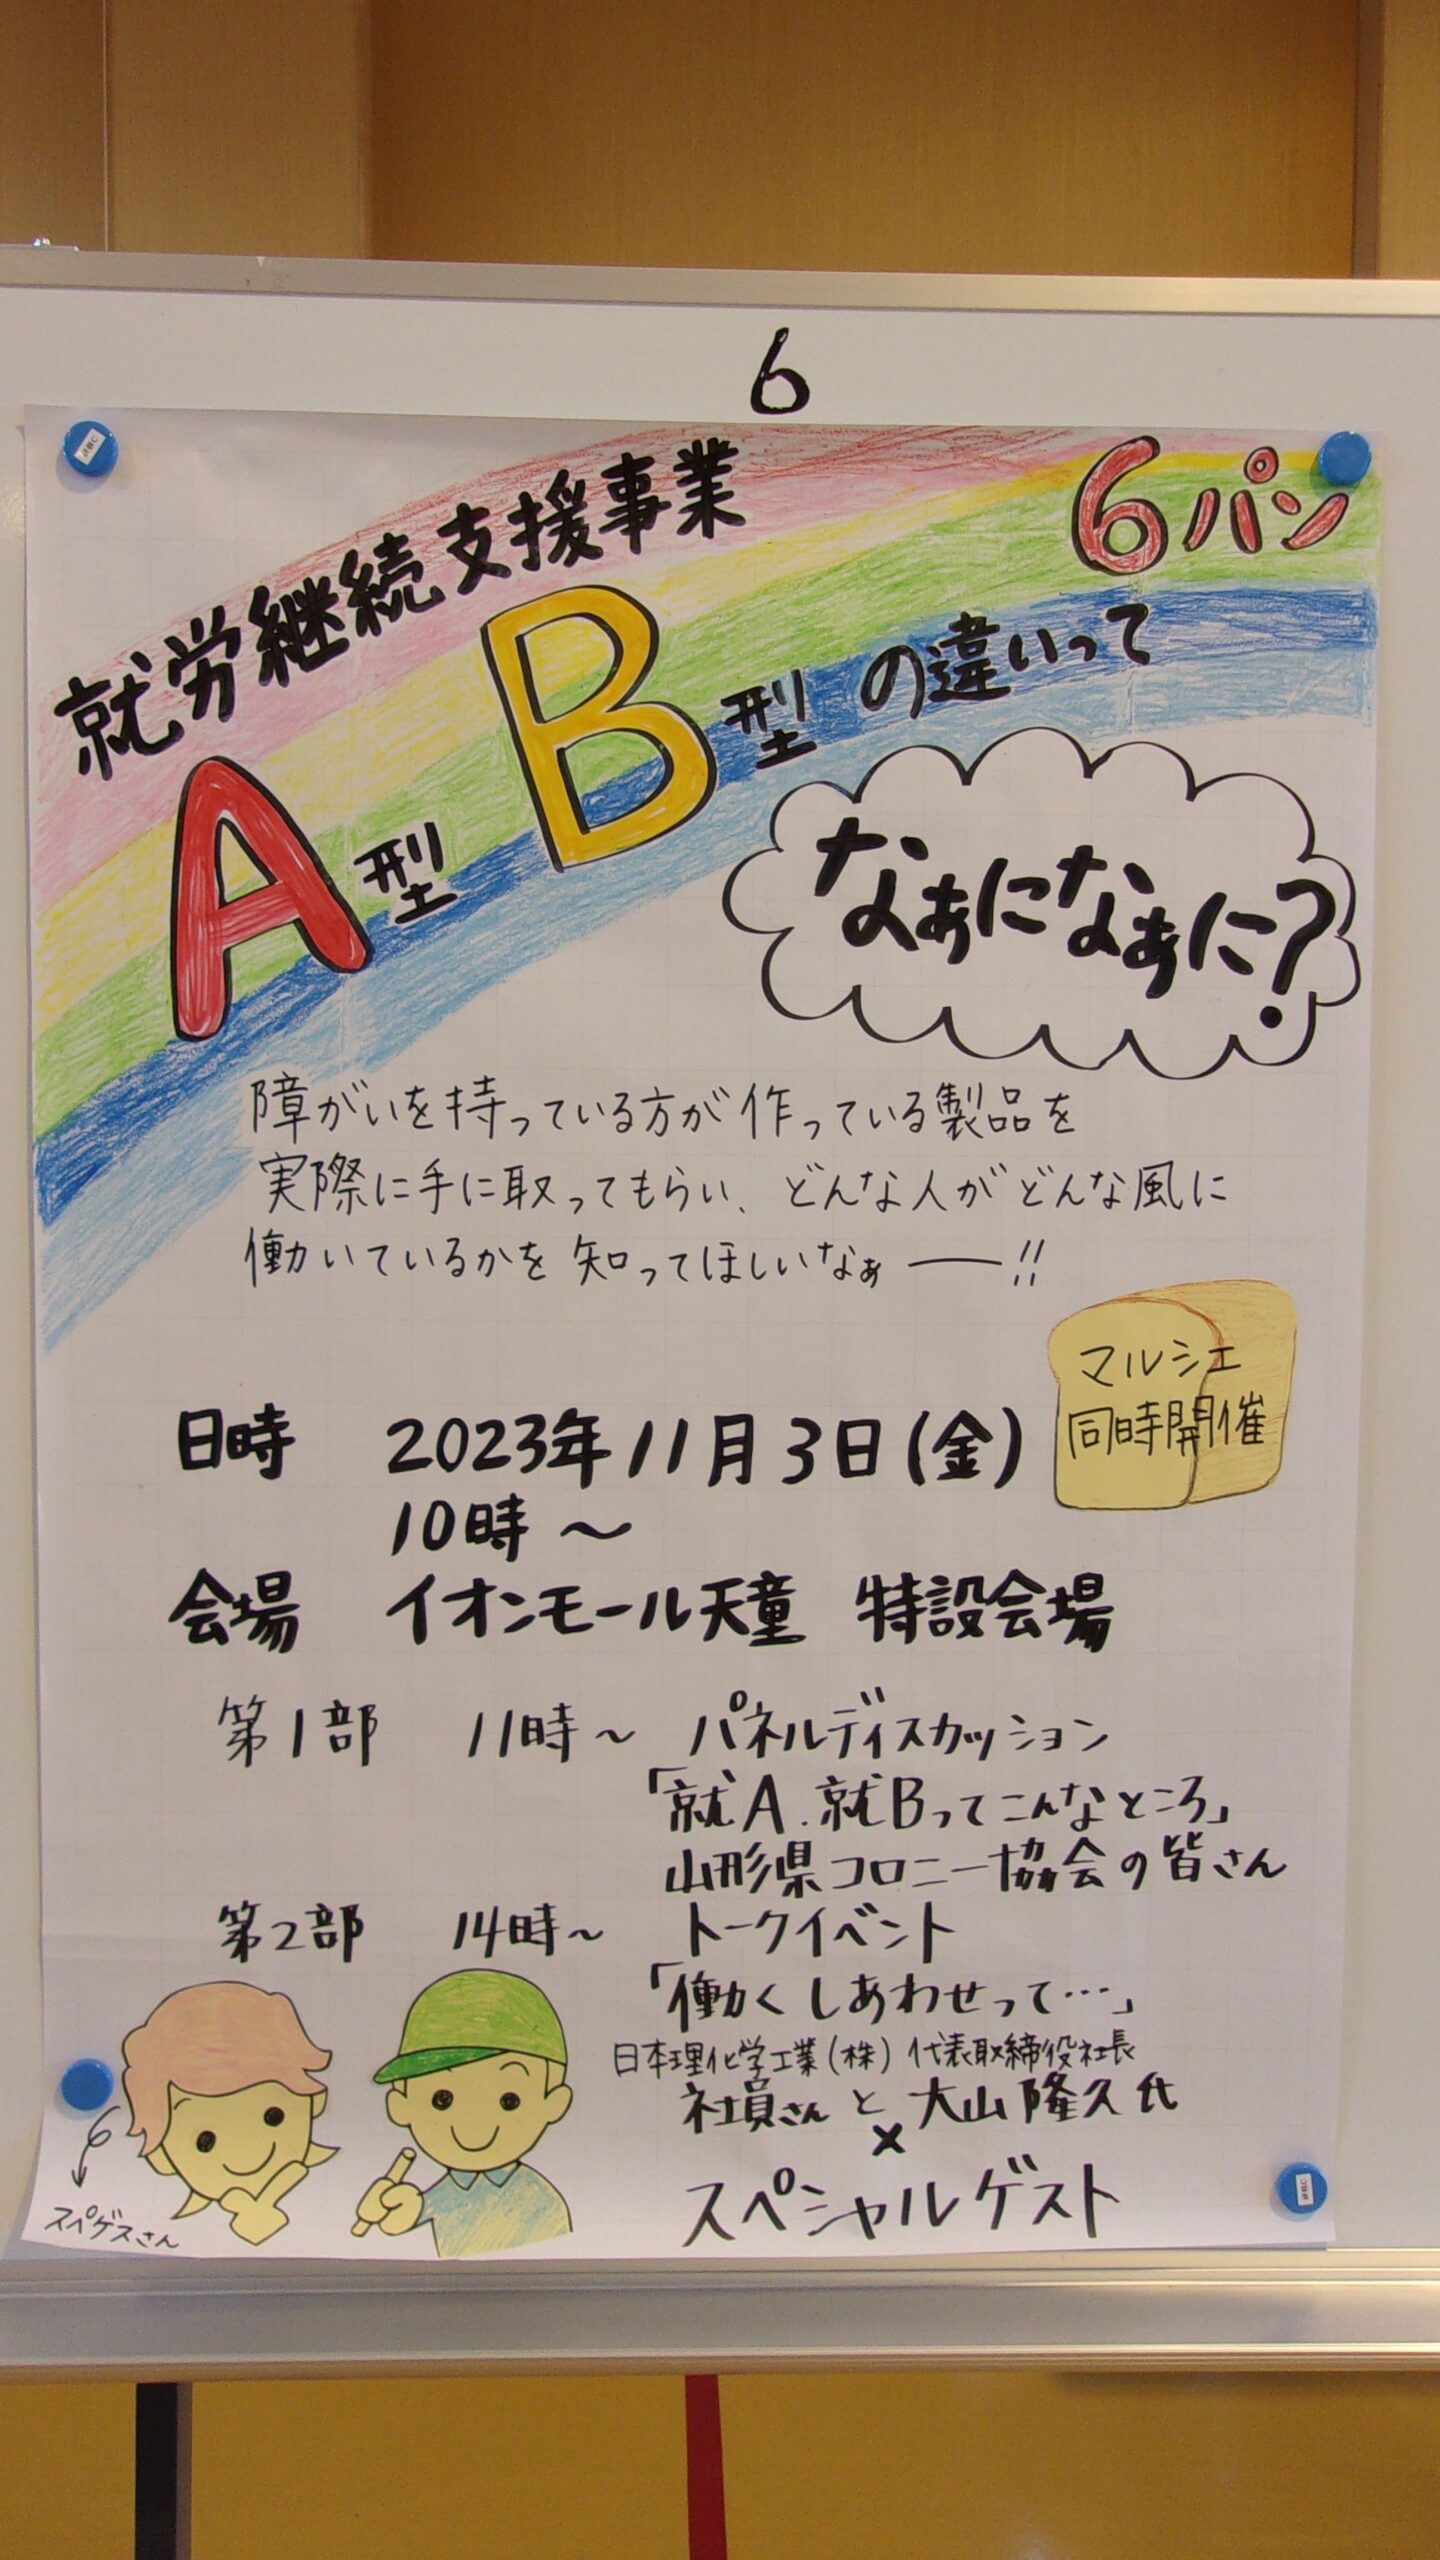 6
6パン
就労継続支援事業
A型 B型の違いって
なぁになぁに?
障がいを持っている方が作っている製品を
実際に手に取ってもらい、どんな人がどんな風に
働いているかを知ってほしいなぁ――!!
マルシェ
同時開催
日時 2023年11月3日(金)
10時~
会場 イオンモール天童 特設会場
第1部 11時~ パネルディスカッション
「就A.就Bってこんなところ」
山形県コロニー協会の皆さん
第2部 14時~ トークイベント
「働くしあわせって…」
日本理化学工業(株)代表取締役社長
社員さんと大山隆久氏
×
スペシャルゲスト
スペゲスさん